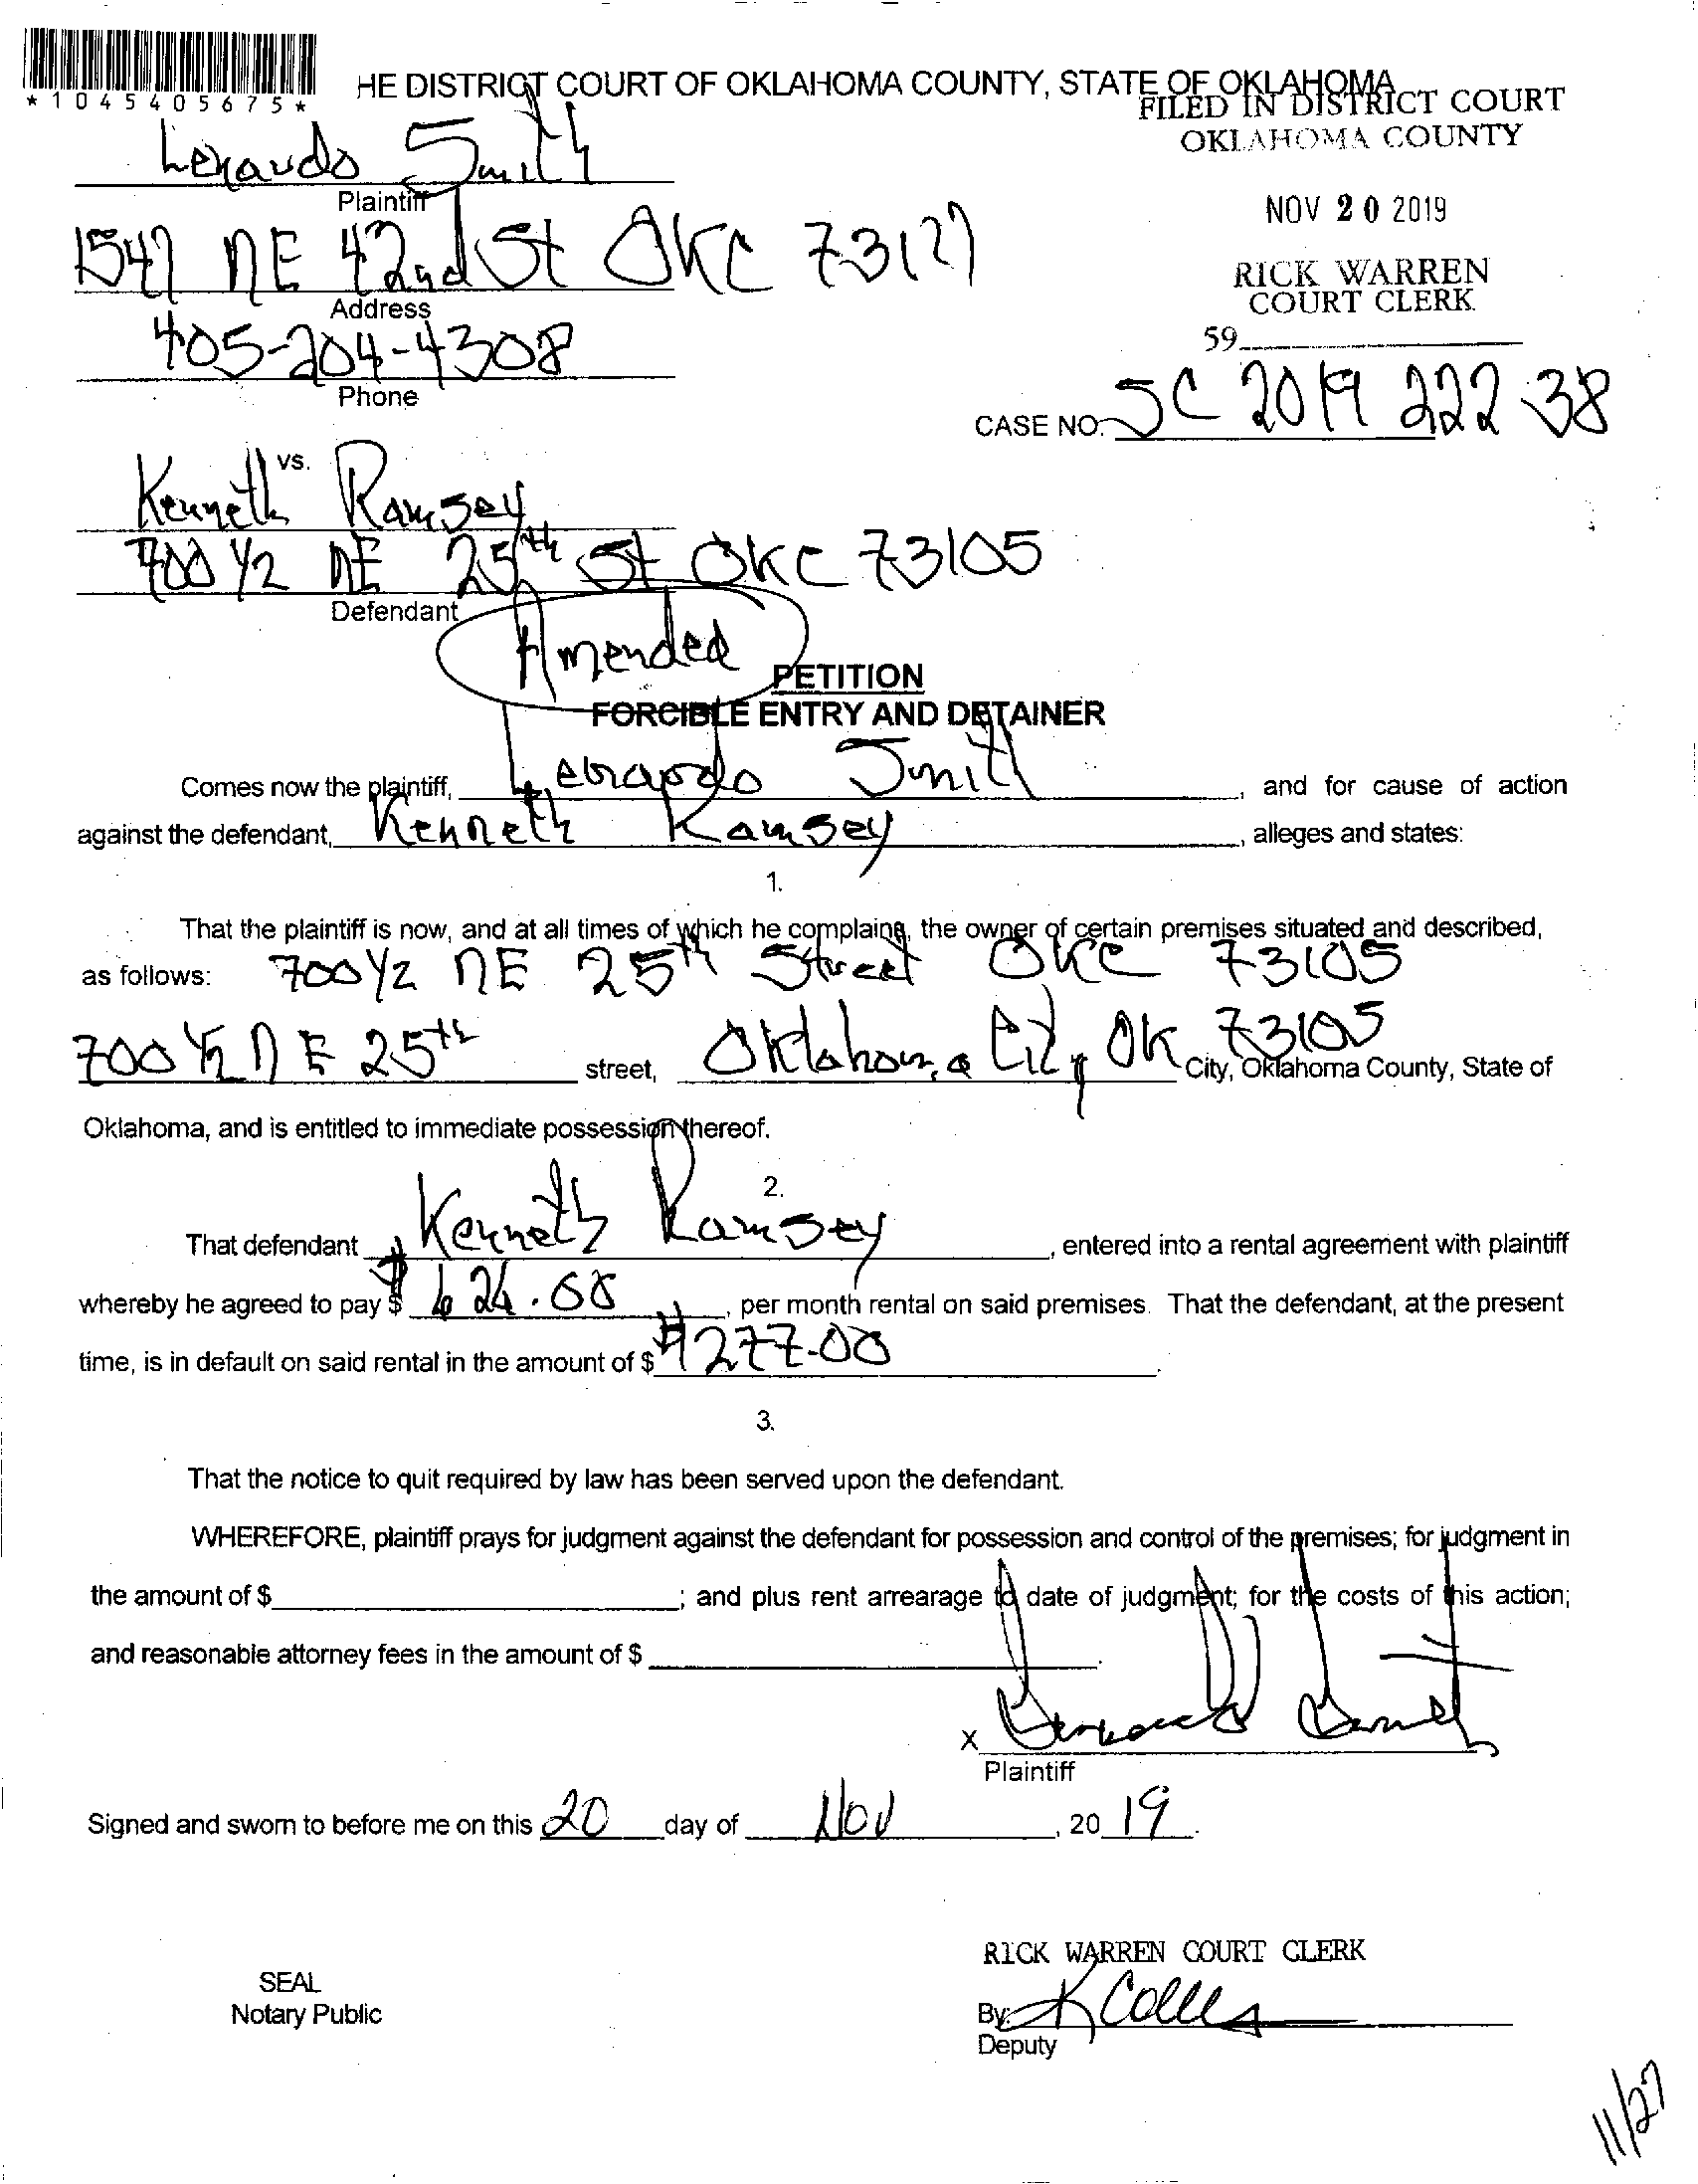 *1045405675*
HE DISTRICT COURT OF OKLAHOMA COUNTY, STATE OF OKLAHOMA
FILED IN DISTRICT COURT
OKLAHOMA COUNTY
Smith
Plaintiff
NOV 20 2019
1547 NE 42nd St OKC 73127
Address
RICK WARREN
COURT CLERK
405-204-4308
Phone
59
CASE NO. SC 2019 222 38
vs.
Kenneth Ramsey
700 1/2 NE 25th St OKC 73105
Defendant
Amended
PETITION
FORCIBLE ENTRY AND DETAINER
Comes now the plaintiff, Smith, and for cause of action
against the defendant, Kenneth Ramsey, alleges and states:
1.
That the plaintiff is now, and at all times of which he complains, the owner of certain premises situated and described,
as follows: 700 1/2 NE 25th Street OKC 73105
700 1/2 NE 25th street, Oklahoma City, OK 73105 City, Oklahoma County, State of
Oklahoma, and is entitled to immediate possession thereof.
2.
That defendant Kenneth Ramsey, entered into a rental agreement with plaintiff
whereby he agreed to pay $ , per month rental on said premises. That the defendant, at the present
time, is in default on said rental in the amount of $ .
3.
That the notice to quit required by law has been served upon the defendant.
WHEREFORE, plaintiff prays for judgment against the defendant for possession and control of the premises; for judgment in
the amount of $ ; and plus rent arrearage to date of judgment; for the costs of this action;
and reasonable attorney fees in the amount of $ .
X
Plaintiff
Signed and sworn to before me on this 20 day of Nov, 20 19.
RICK WARREN COURT CLERK
SEAL
Notary Public
By:
Deputy
11/27